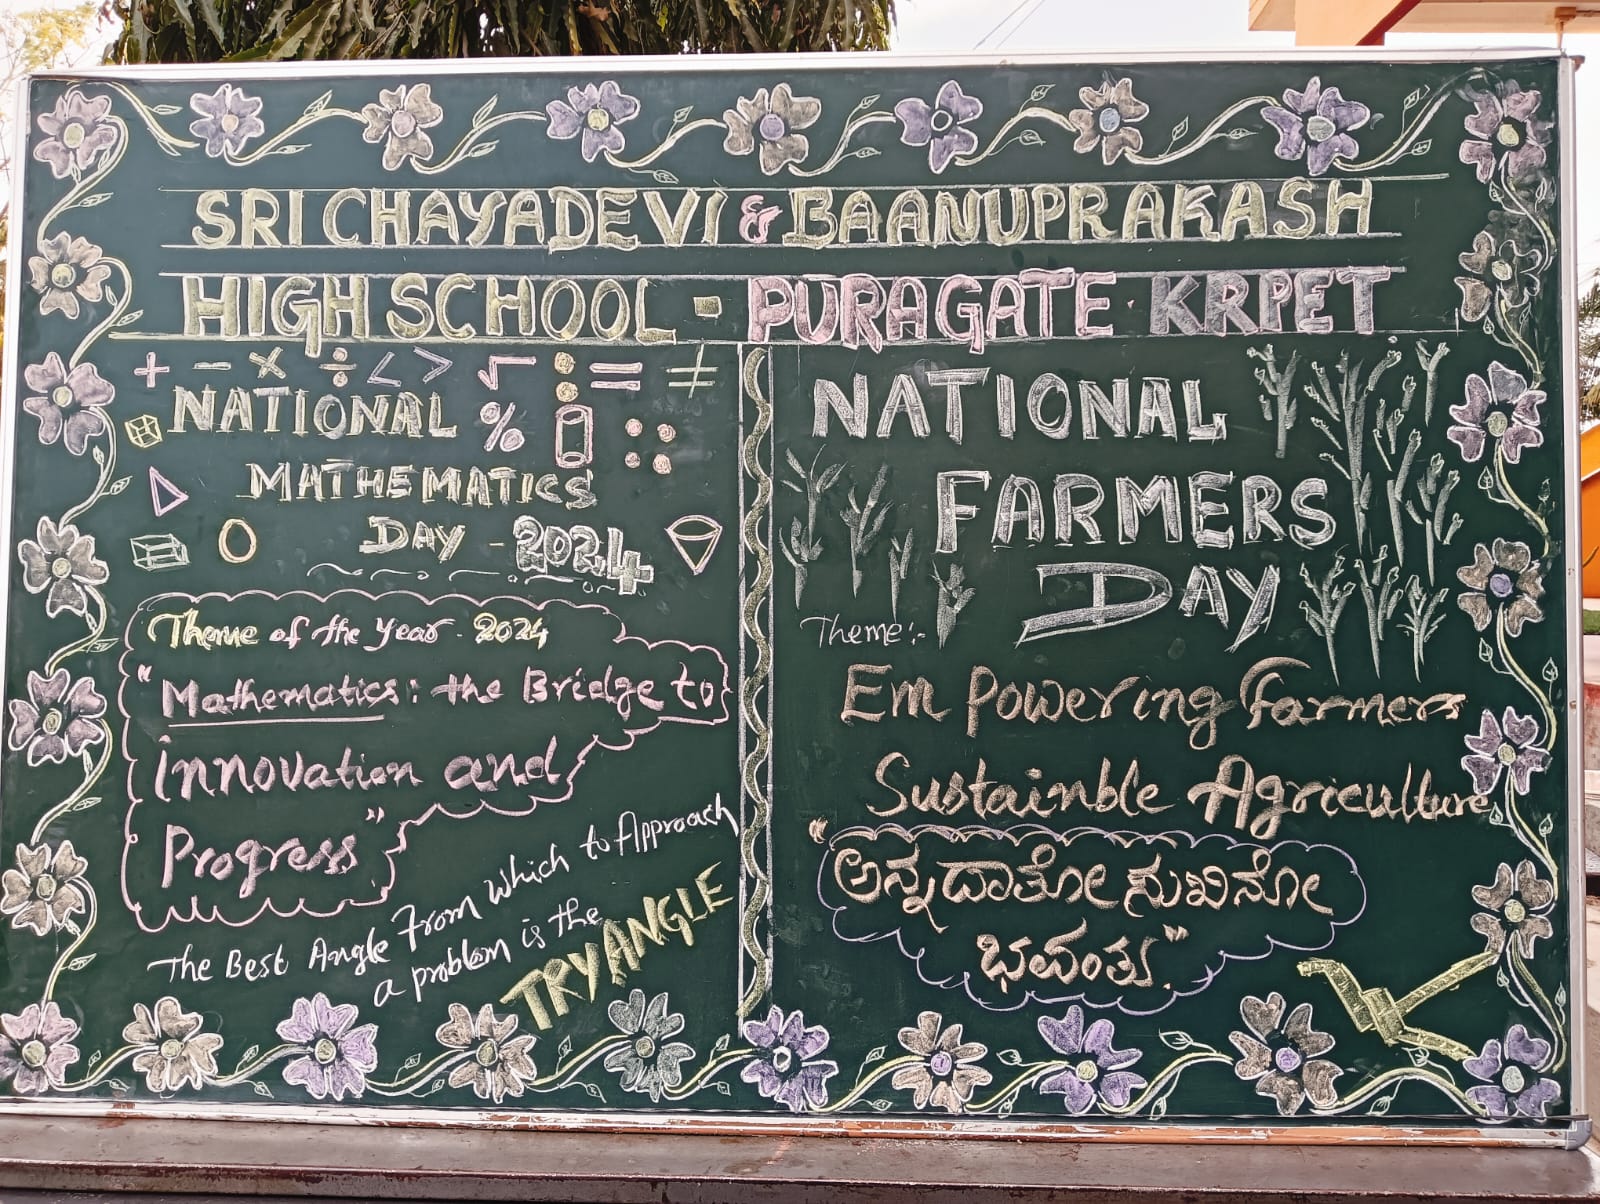 SRI CHAYADEVI & BAANUPRAKASH
HIGH SCHOOL - PURAGATE. KRPET
+ − × ÷ < > √ : = ≠
NATIONAL %
MATHEMATICS
DAY - 2024
Theme of the Year - 2024
"Mathematics: the Bridge to
innovation and
Progress"
The Best Angle From Which to Approach
a problem is the
TRYANGLE
NATIONAL
FARMERS
DAY
Theme:-
Em Powering Farmers
Sustainble Agriculture
"ಅನ್ನದಾತೋ ಸುಖಿನೋ
ಭವಂತು"